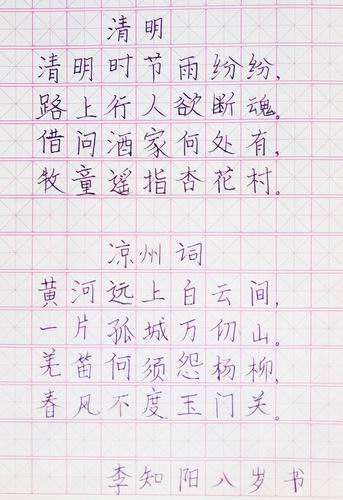 清明
清明时节雨纷纷,
路上行人欲断魂。
借问酒家何处有,
牧童遥指杏花村。
凉州词
黄河远上白云间,
一片孤城万仞山。
羌笛何须怨杨柳,
春风不度玉门关。
李知阳八岁书